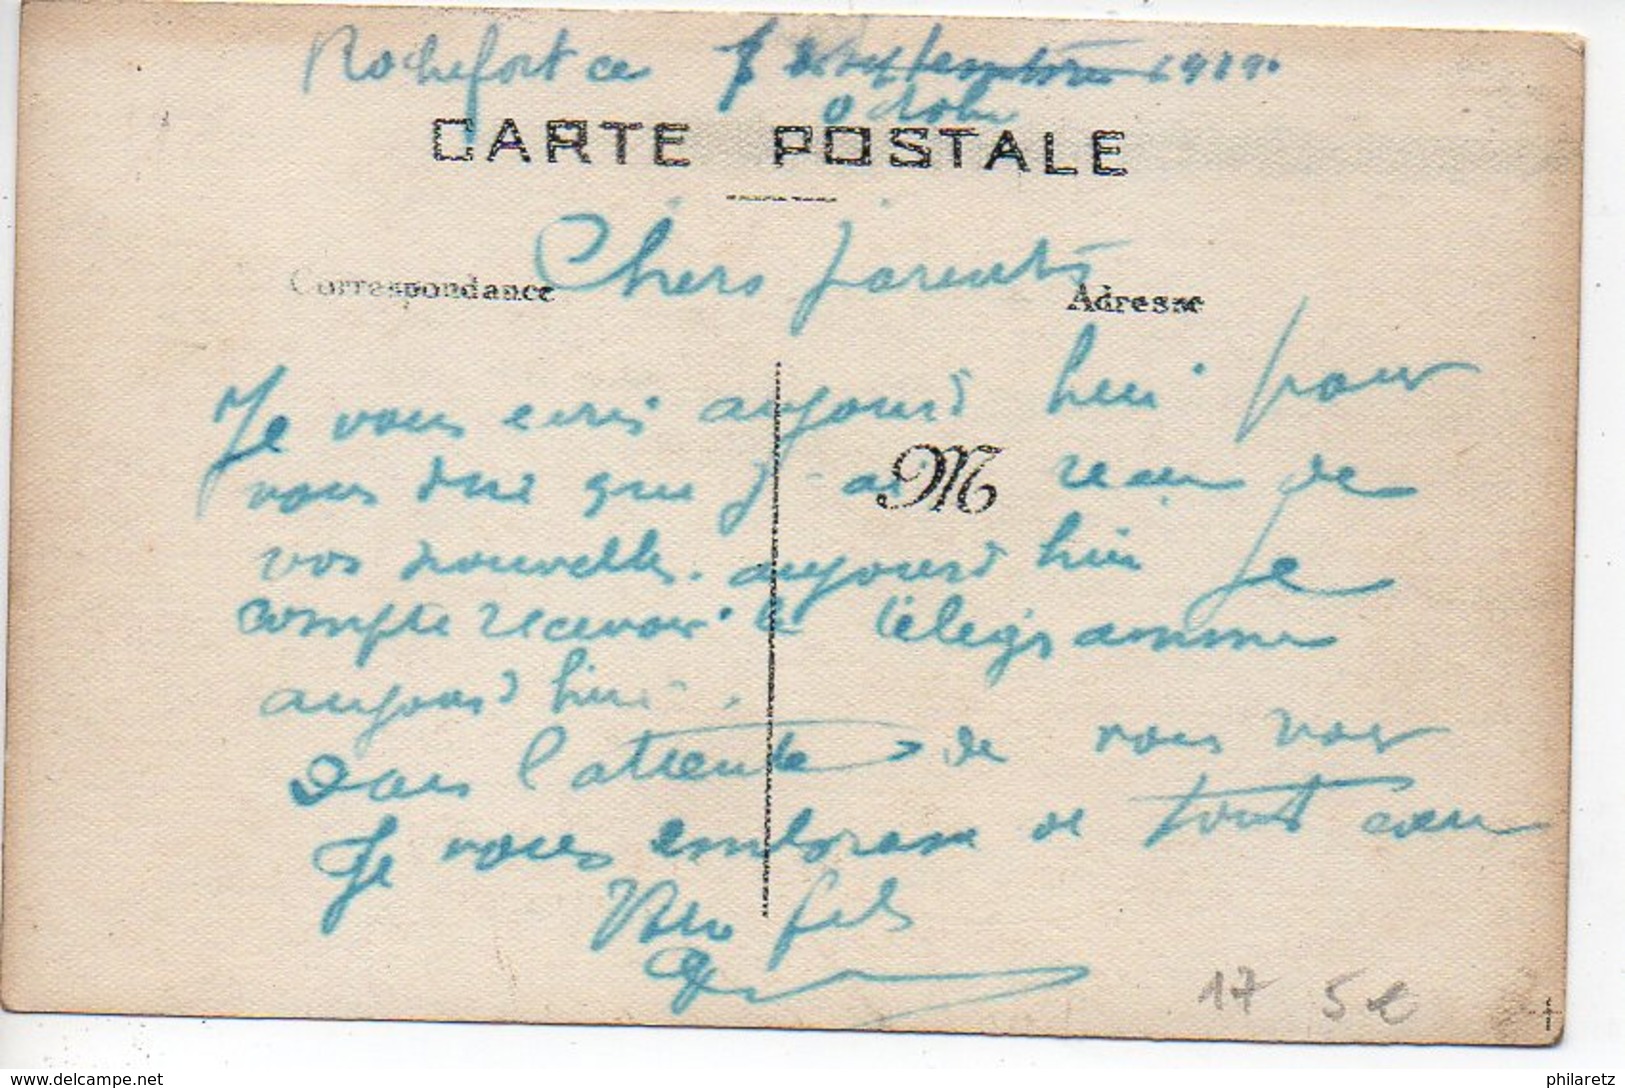 Rochefort ce 7 septembre 1919.
octobre
CARTE POSTALE
Chers parents
Correspondance
Adresse
Je vous ecris aujourd hui pour
vous dire que j-ai recu de
M
vos nouvelles. aujourd hui Je
compte recevoir le télégramme
aujourd hui.
Dans l'attente de vous voir
Je vous embrasse de tout coeur
Votre fils
17 5 €
www.delcampe.net
philaretz